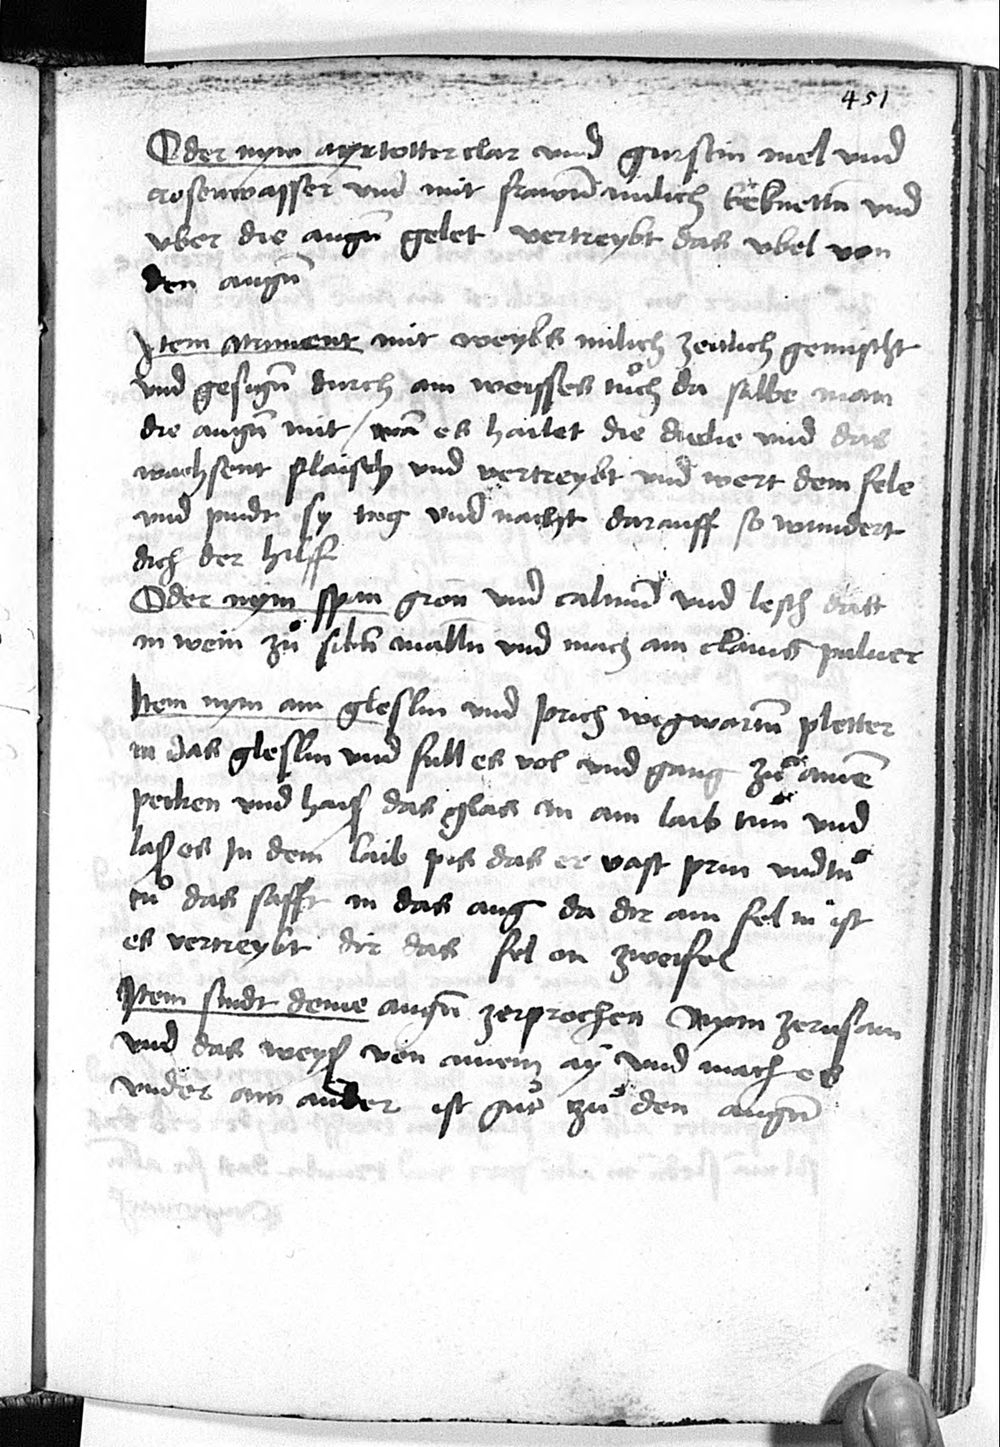 451
Oder nym ayrtotter clar vnd gerstin mel vnd
rosenwasser vnd mit frawen milich geknettn vnd
vber die augn gelet vertreybt das vbel von
den augn
Item atrament mit weybs milich zeitlich gemischt
vnd gesygn durch ain weysses tuch da salbe man
die augn mit / wan es hailet die dicke vnd das
wachsent flaisch vnd vertreybt vnd wert dem fele
vnd pindt sy tag vnd nacht darauff so wundert
dich der hilff
Oder nym span gron vnd calmin vnd lesch datt
in wein zu siben malln vnd mach ain clains puluer
Item nym ain gleslin vnd prich wegwartn pletter
in das gleslin vnd full es vol vnd gang zu ainem
pecken vnd hais das glas in ain laib tun vnd
las es In dem laib pis das er vast prin vnd tu
tu das safft in das aug da dir ain fel in ist
es vertreybt dir das fel on zweifel
Item sindt deine augn zerprochen Nym zerusam
vnd das weys von ainem ay vnd mach es
vnder ain ander ist gut zu den augn